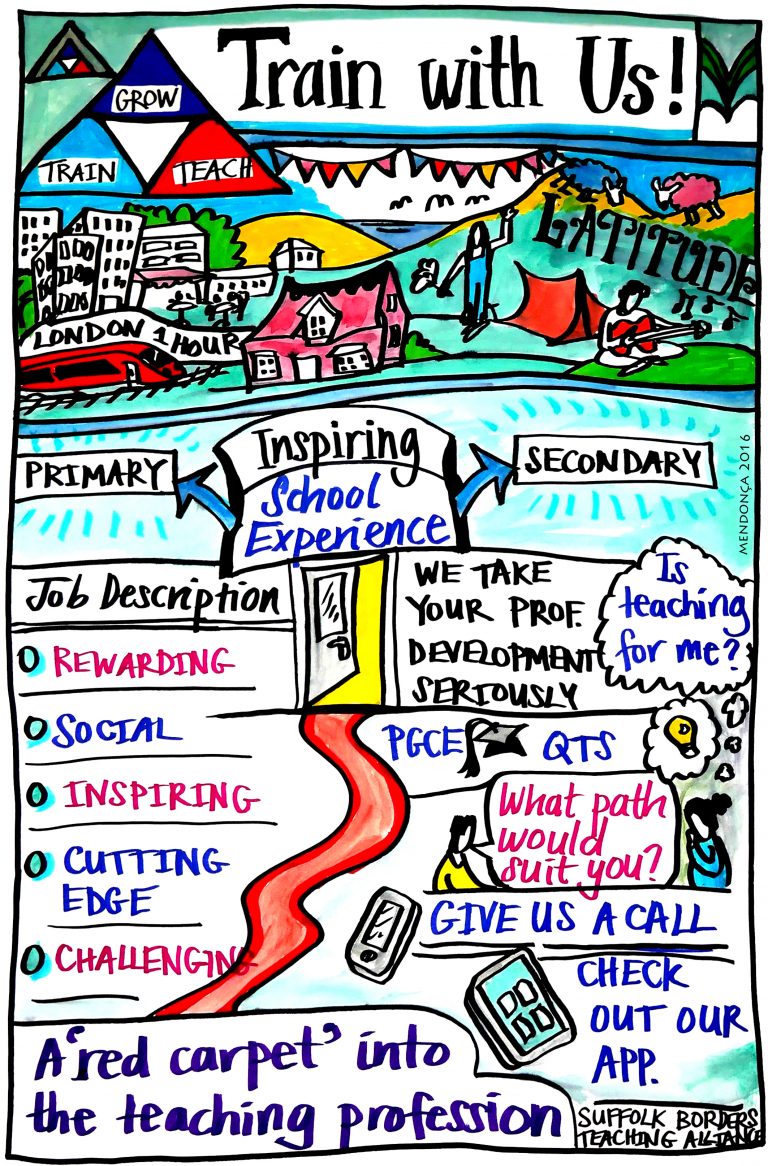 Train with Us!
GROW
TRAIN
TEACH
LATITUDE
LONDON 1 HOUR
Inspiring
School
Experience
PRIMARY
SECONDARY
MENDONÇA 2016
Job Description
O REWARDING
O SOCIAL
O INSPIRING
O CUTTING
EDGE
O CHALLENGING
WE TAKE
YOUR PROF.
DEVELOPMENT
SERIOUSLY
Is
teaching
for me?
PGCE
QTS
What path
would
suit you?
GIVE US A CALL
CHECK
OUT OUR
APP.
A 'red carpet' into
the teaching profession
SUFFOLK BORDERS
TEACHING ALLIANCE